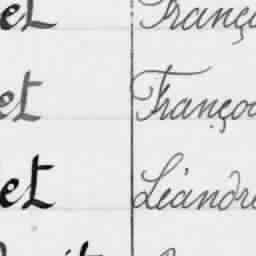 et Franço
et Franço
et Léandre